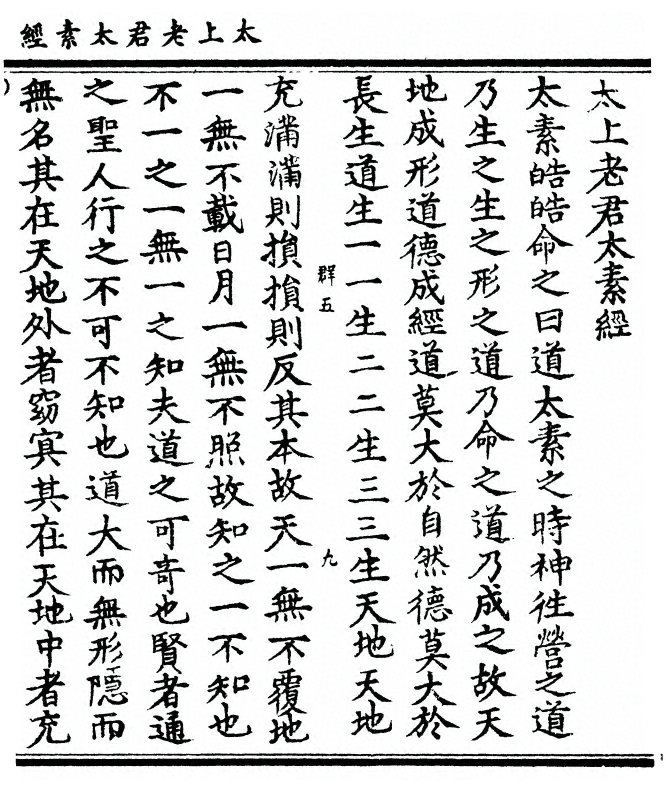 太上老君太素經
太上老君太素經
太素皓皓命之曰道太素之時神往營之道
乃生之生之形之道乃命之道乃成之故天
地成形道德成經道莫大於自然德莫大於
長生道生一一生二二生三三生天地天地
群五
九
充滿滿則損損則反其本故天一無不覆地
一無不載日月一無不照故知之一不知也
不一之一無一之知夫道之可奇也賢者通
之聖人行之不可不知也道大而無形隱而
無名其在天地外者窈冥其在天地中者充